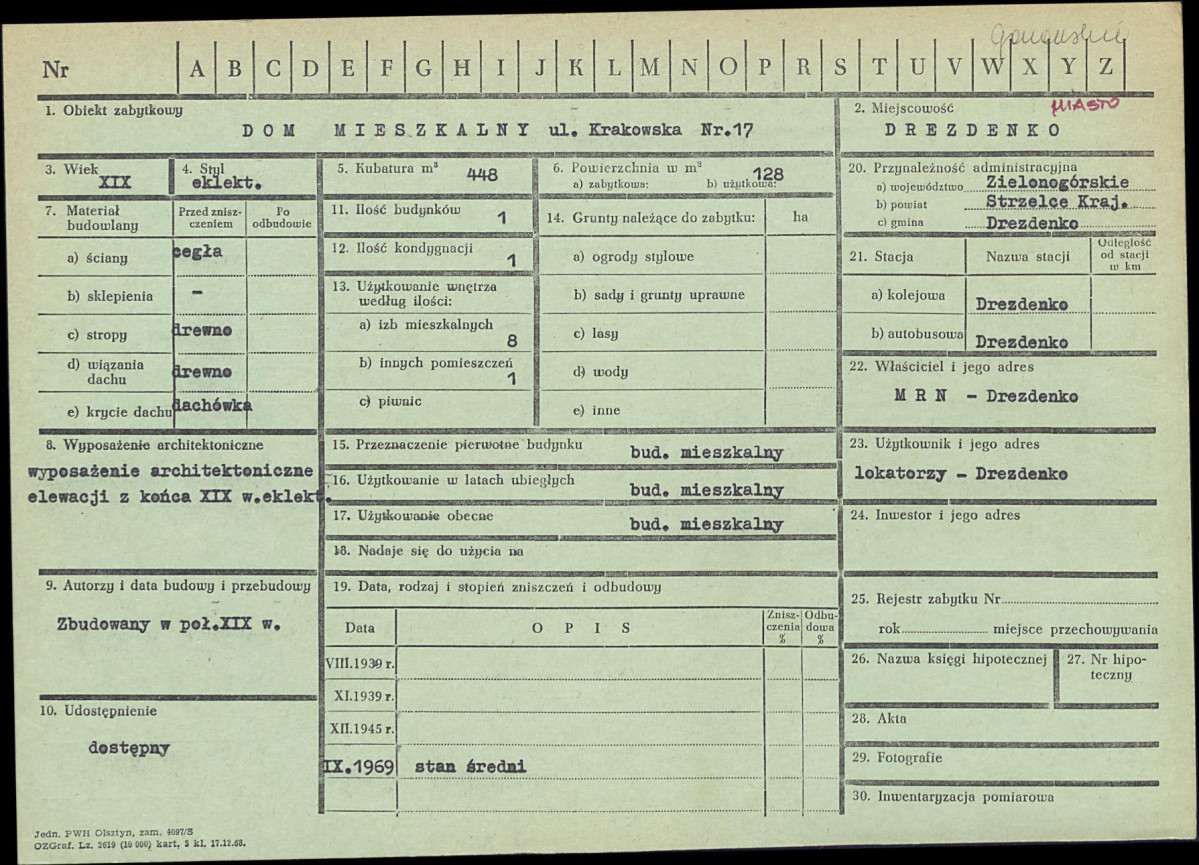 Nr A B C D E F G H I J K L M N O P R S T U V W X Y Z
1. Obiekt zabytkowy
DOM MIESZKALNY ul. Krakowska Nr.17
2. Miejscowość
MIASTO
DREZDENKO
3. Wiek
XIX
4. Styl
eklekt.
5. Kubatura m³
448
6. Powierzchnia w m²
a) zabytkowa: b) użytkowa:
128
20. Przynależność administracyjna
a) województwo Zielonogórskie
b) powiat Strzelce Kraj.
c) gmina Drezdenko
7. Materiał budowlany
Przed zniszczeniem
Po odbudowie
a) ściany cegła
b) sklepienia –
c) stropy drewno
d) wiązania dachu drewno
e) krycie dachu dachówka
11. Ilość budynków 1
12. Ilość kondygnacji 1
13. Użytkowanie wnętrza
według ilości:
a) izb mieszkalnych 8
b) innych pomieszczeń 1
c) piwnic
14. Grunty należące do zabytku: ha
a) ogrody stylowe
b) sady i grunty uprawne
c) lasy
d) wody
e) inne
21. Stacja Nazwa stacji Odległość od stacji w km
a) kolejowa Drezdenko
b) autobusowa Drezdenko
22. Właściciel i jego adres
MRN – Drezdenko
8. Wyposażenie architektoniczne
wyposażenie architektoniczne
elewacji z końca XIX w.eklekt.
15. Przeznaczenie pierwotne budynku
bud. mieszkalny
16. Użytkowanie w latach ubiegłych
bud. mieszkalny
17. Użytkowanie obecne
bud. mieszkalny
18. Nadaje się do użycia na
23. Użytkownik i jego adres
lokatorzy – Drezdenko
24. Inwestor i jego adres
9. Autorzy i data budowy i przebudowy
Zbudowany w poł.XIX w.
19. Data, rodzaj i stopień zniszczeń i odbudowy
Data OPIS Zniszczenia % Odbudowa %
VIII.1939 r.
XI.1939 r.
XII.1945 r.
IX.1969 stan średni
25. Rejestr zabytku Nr
rok miejsce przechowywania
26. Nazwa księgi hipotecznej
27. Nr hipoteczny
10. Udostępnienie
dostępny
28. Akta
29. Fotografie
30. Inwentaryzacja pomiarowa
Jedn. PWH Olsztyn, zam. 4097/S
OZGraf. Lz. 2619 (10 000) kart, 5 kl. 17.12.68.